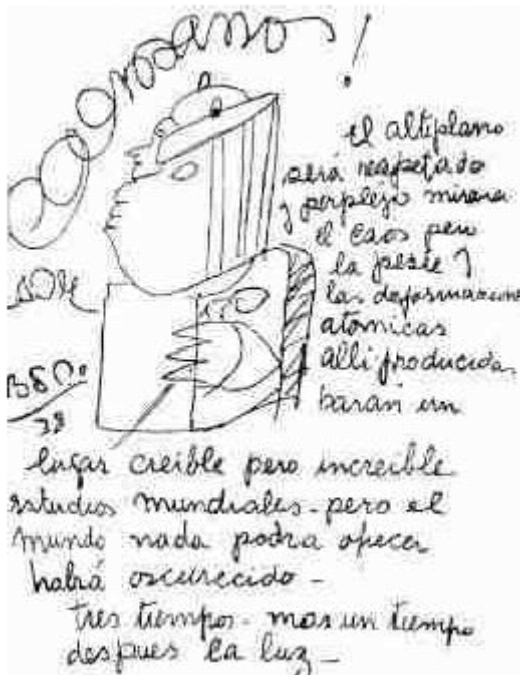 el altiplano
será respetado
y perplejo mirara
el caos pero
la peste y
las deformaciones
atomicas
alli producida
harán un
lugar creible pero increible
estudios mundiales - pero el
mundo nada podra ofrecer
habrá oscurecido -
tres tiempos - mas un tiempo
despues la luz -